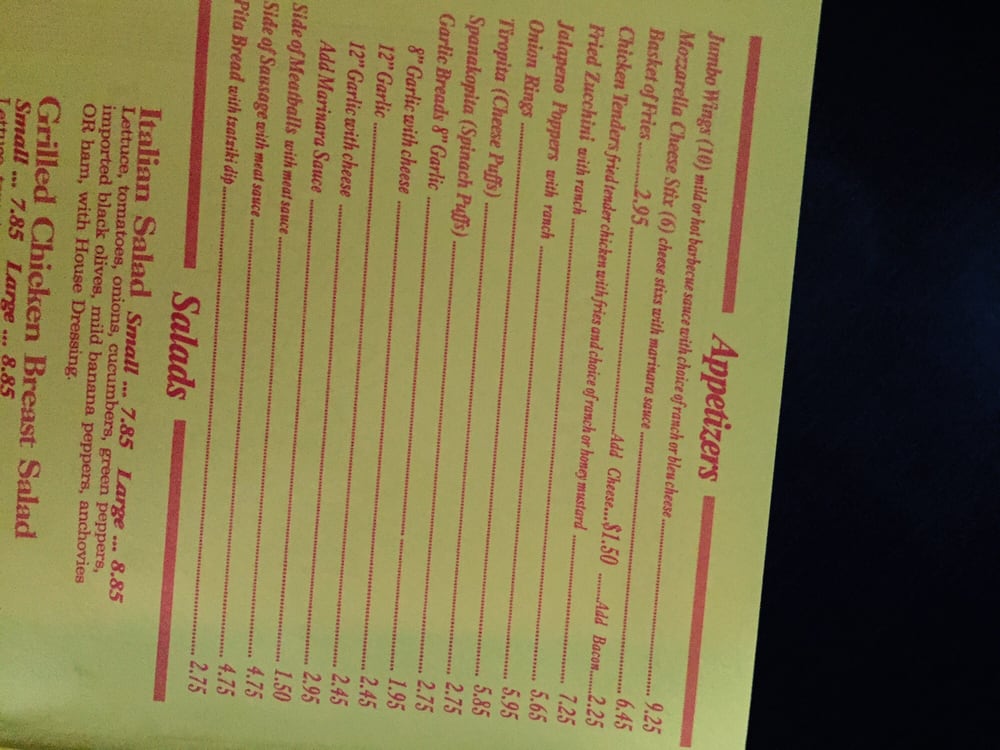 Appetizers
Jumbo Wings (10) mild or hot barbecue sauce with choice of ranch or bleu cheese ........ 9.25
Mozzarella Cheese Stix (6) cheese stixs with marinara sauce ........ 6.45
Basket of Fries ........ 2.95 ........ Add Cheese...$1.50 ...... Add Bacon.....2.25
Chicken Tenders fried tender chicken with fries and choice of ranch or honey mustard ........ 7.25
Fried Zucchini with ranch ........ 5.65
Jalapeno Poppers with ranch ........ 5.95
Onion Rings ........ 5.85
Tiropita (Cheese Puffs) ........ 2.75
Spanakopita (Spinach Puffs) ........ 2.75
Garlic Breads 8" Garlic ........ 1.95
8" Garlic with cheese ........ 2.45
12" Garlic ........ 2.45
12" Garlic with cheese ........ 2.95
Add Marinara Sauce ........ 1.50
Side of Meatballs with meat sauce ........ 4.75
Side of Sausage with meat sauce ........ 4.75
Pita Bread with tzatziki dip ........ 2.75
Salads
Italian Salad Small ... 7.85 Large ... 8.85
Lettuce, tomatoes, onions, cucumbers, green peppers,
imported black olives, mild banana peppers, anchovies
OR ham, with House Dressing.
Grilled Chicken Breast Salad
Small ... 7.85 Large ... 8.85